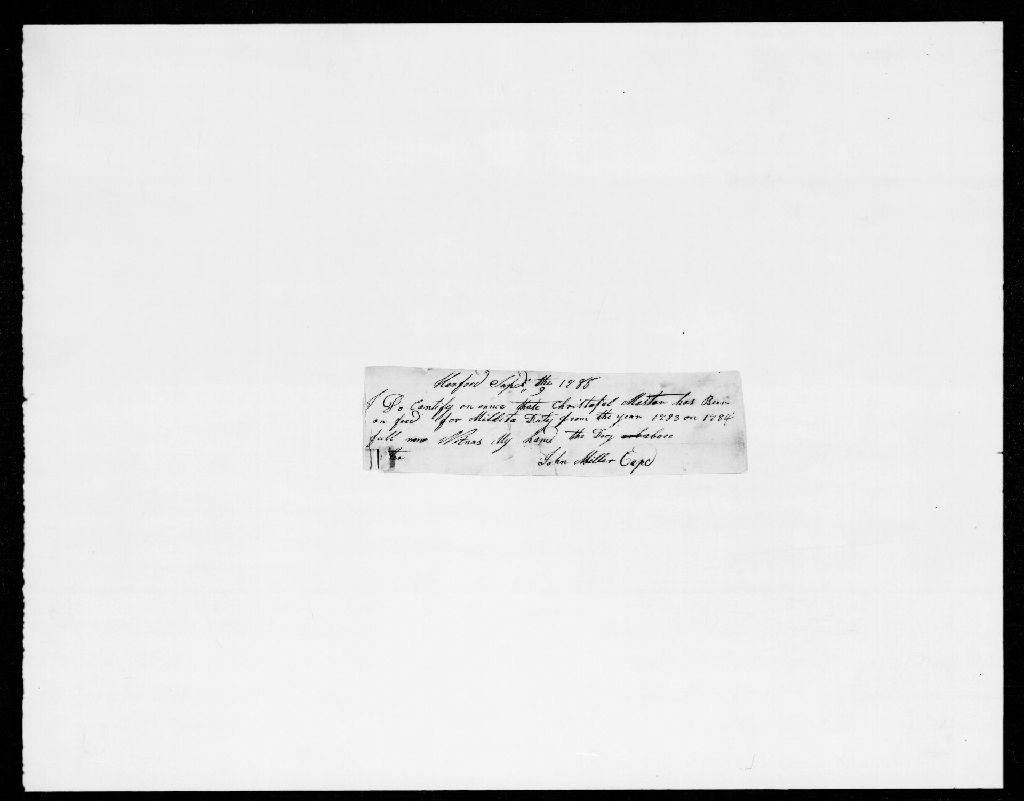 Honford Sepr the 9 1785
I Do Cartify on once thate Christafel Mester has Been
on feed for Millita Duty from the year 1783 on 1784
full now Witnas My hand the Day above
the
John Miller Capt